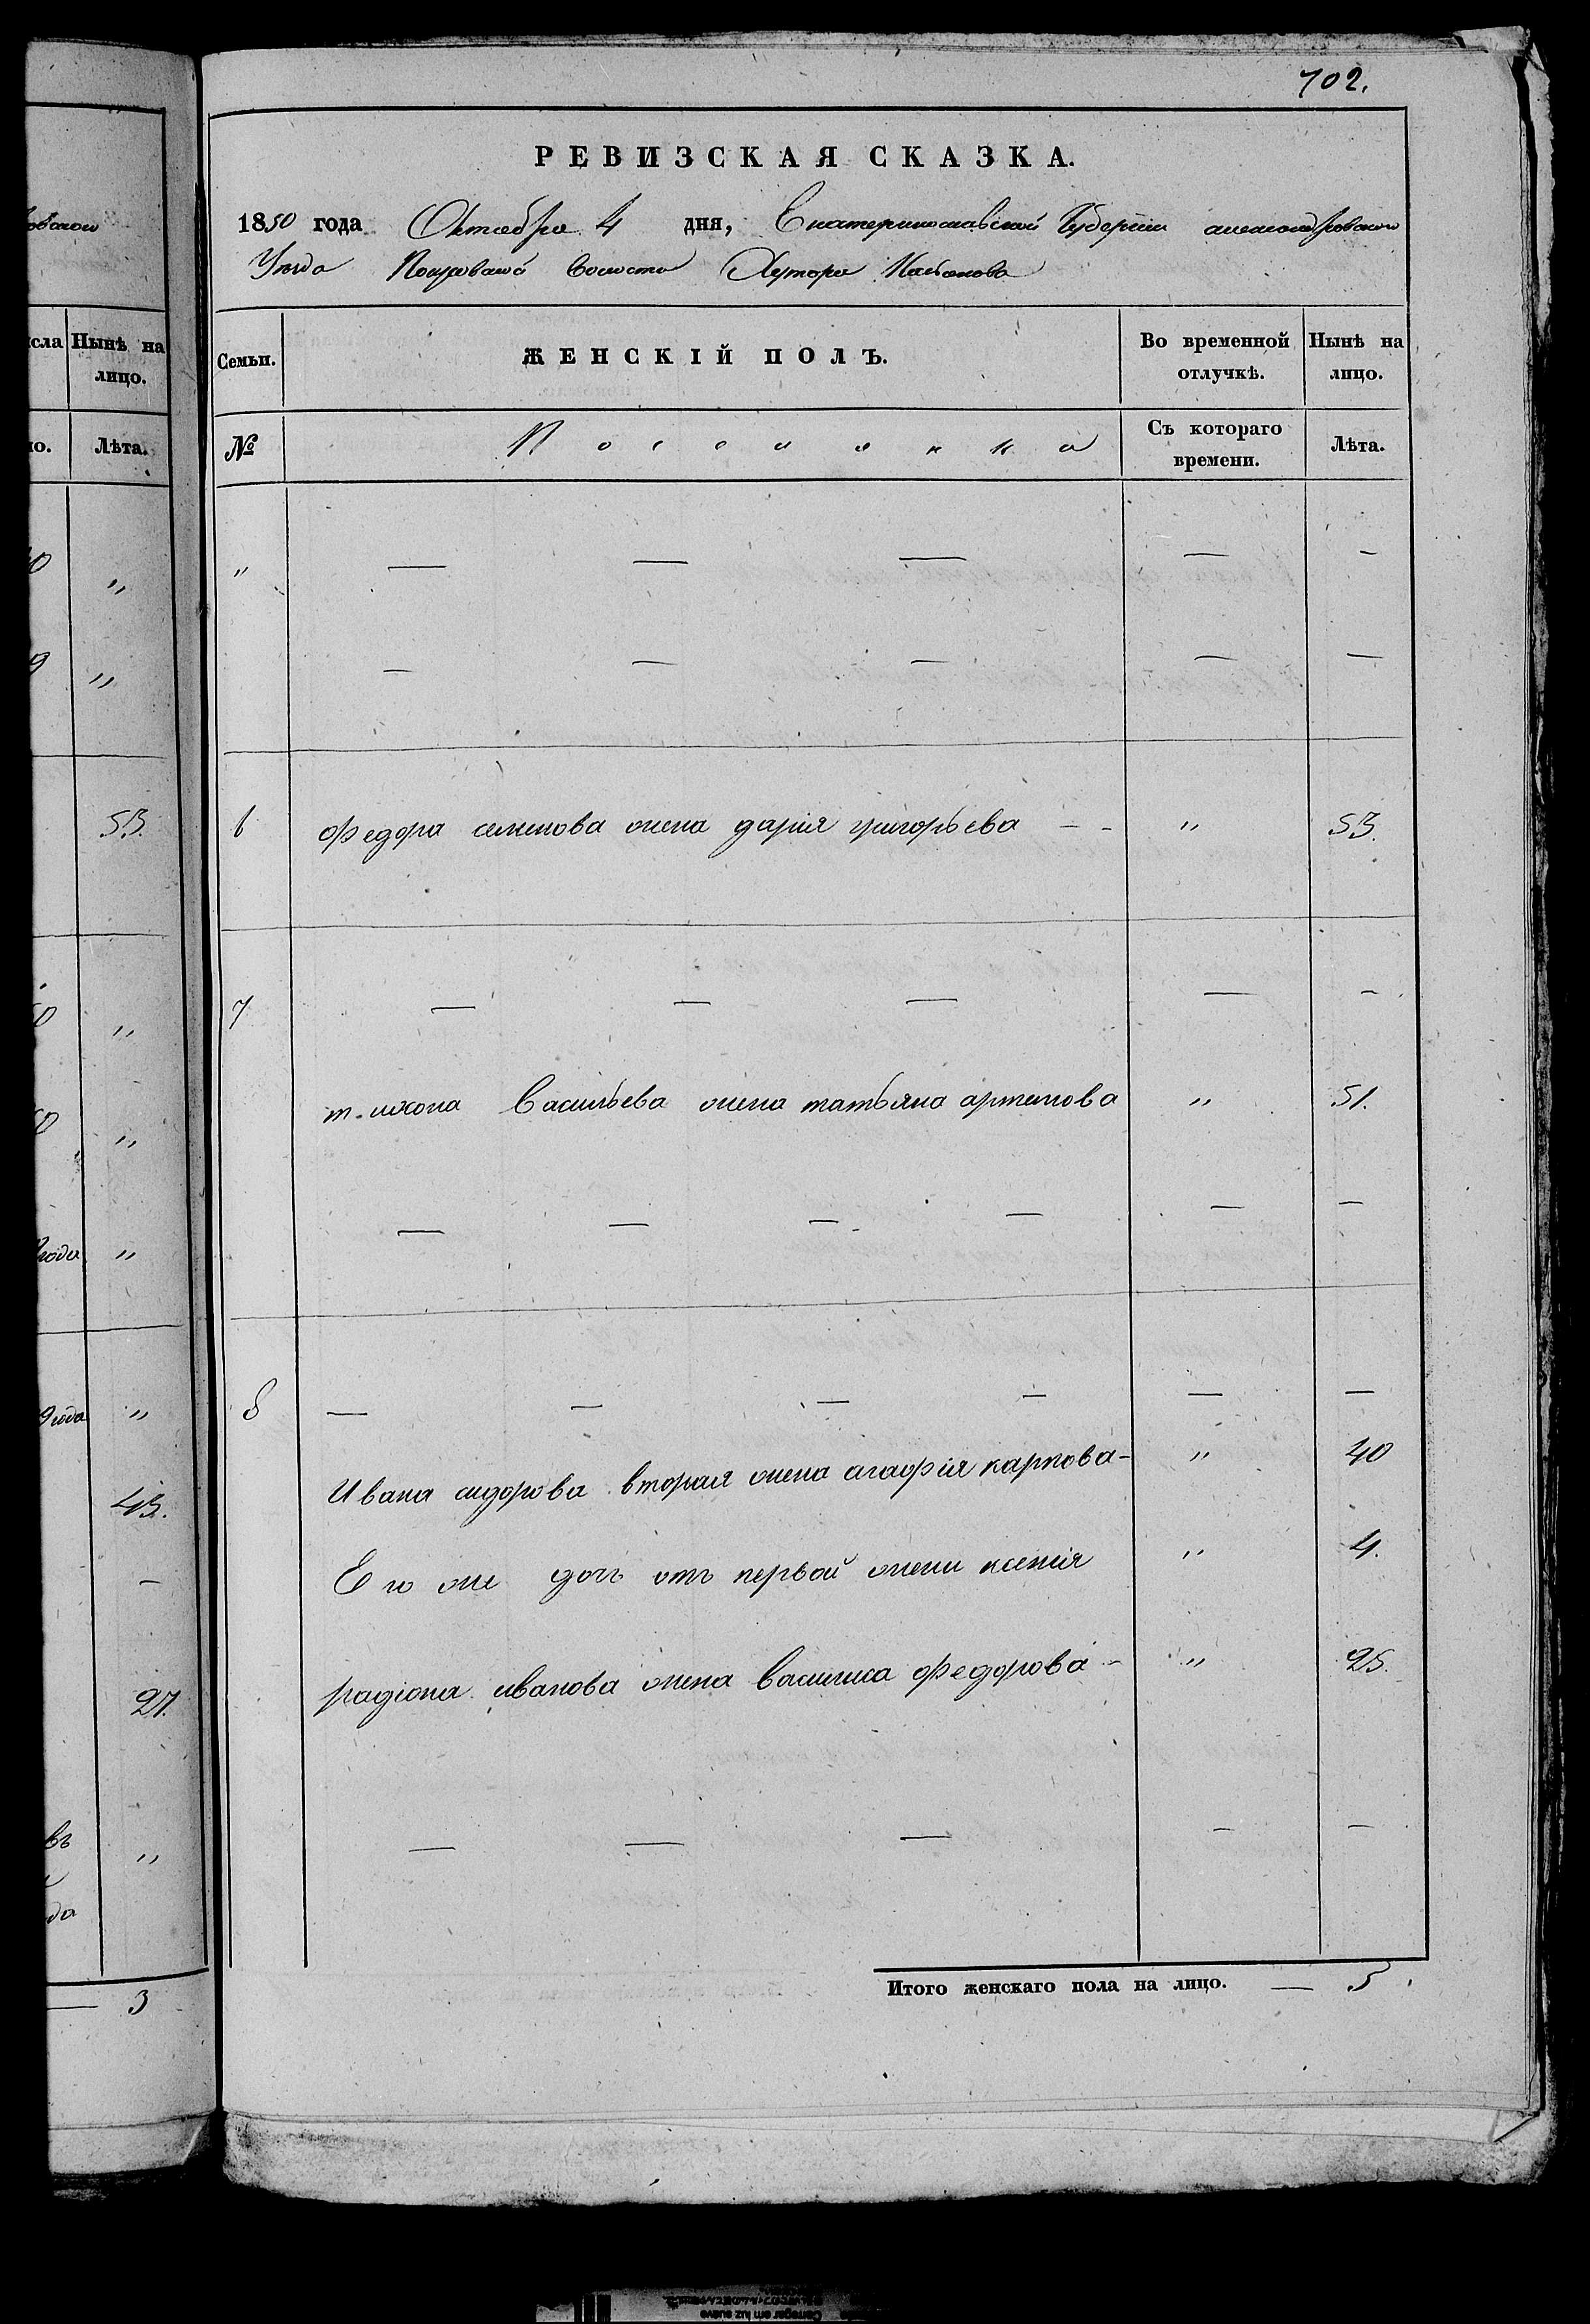 702.
РЕВИЗСКАЯ СКАЗКА.
1850 года Октебра 4 дня, Екатеринославской Губернии александровского
Уезда Покровской Волости Хутора
Семьи.
ЖЕНСКІЙ ПОЛЪ.
Во временной отлучкѣ.
Нынѣ на лицо.
№
Съ котораго времени.
Лѣта.
" — — — — —
— — — — —
6 федора семенова жена дарія григорьева - - " 53.
7 — — — — —
тихона Васильева жена татьяна артемова " 51.
— — — — — —
8 — — — — — —
Ивана сидорова вторая жена агафія карпова - " 40
Его же дочь отъ первой жени ксенія " 4.
радіона иванова жена василиса федорова - " 25.
— — — — —
Итого женскаго пола на лицо. — 5.
сла
Нынѣ на лицо.
но.
Лѣта.
"
"
53.
"
"
года "
9 года "
43.
—
27.
въ "
да
— 3